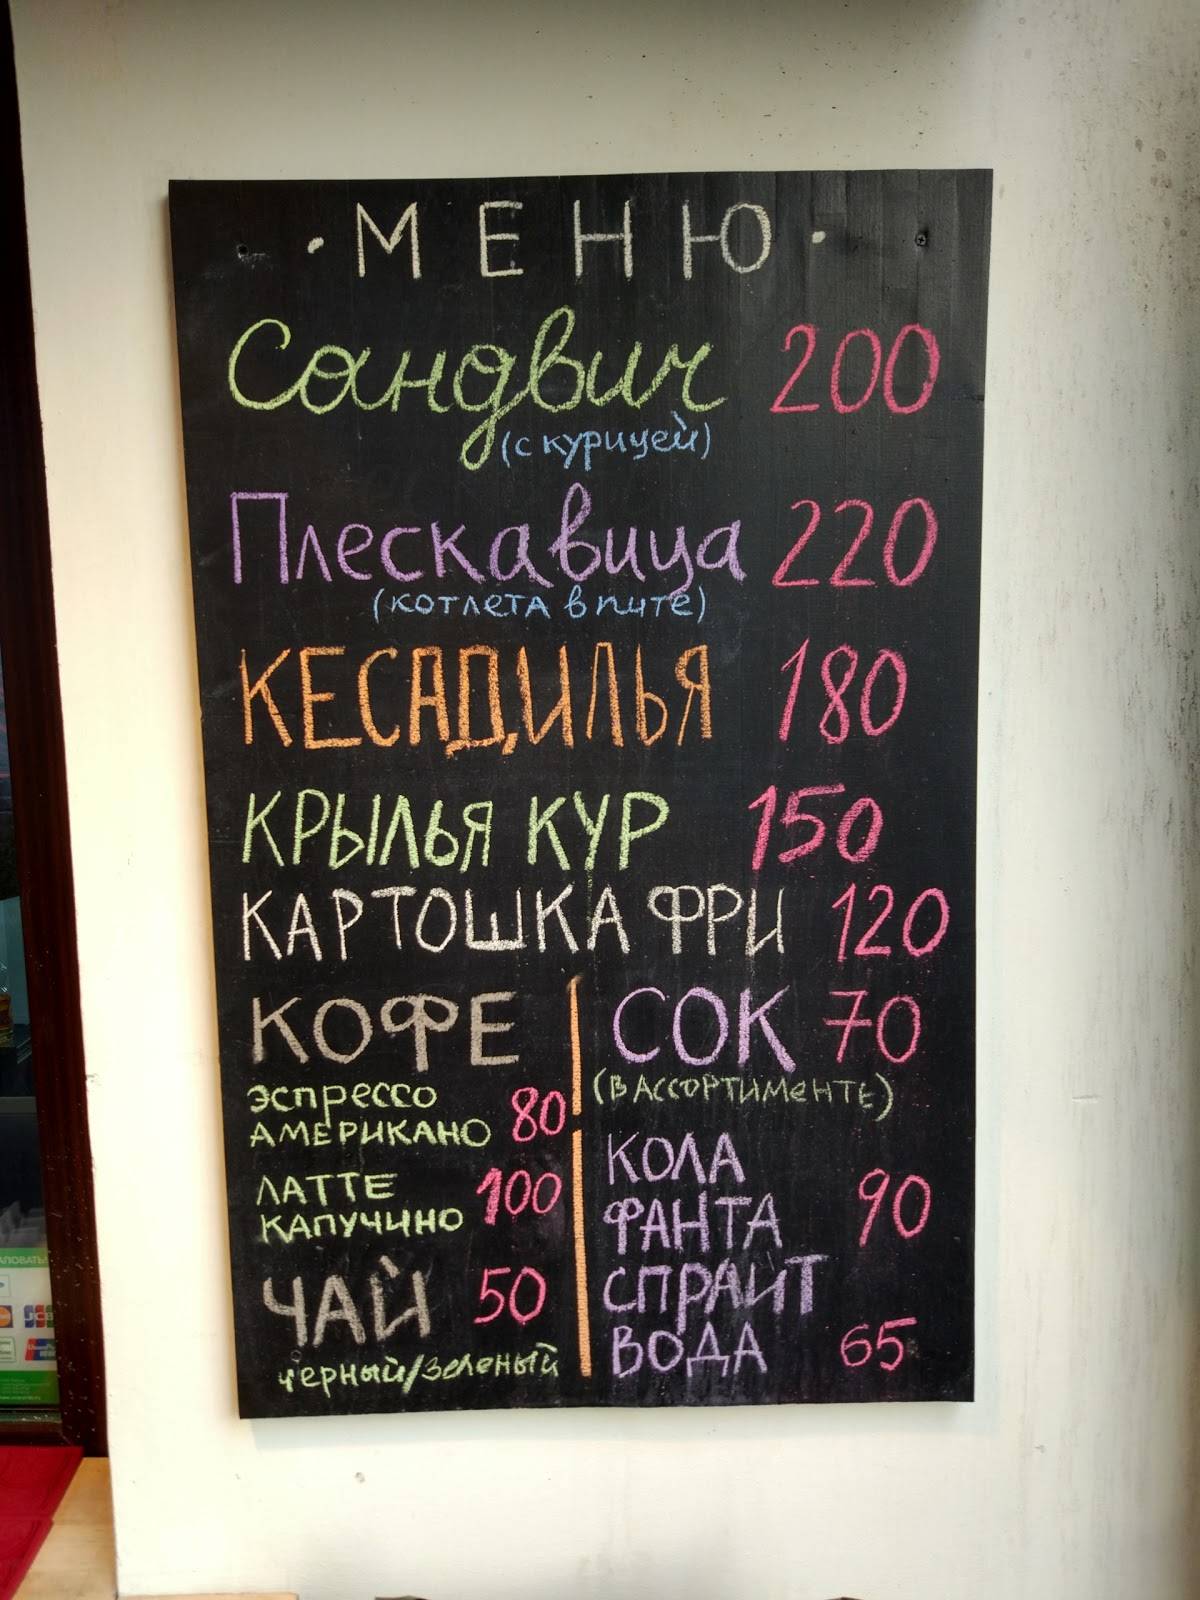 · М Е Н Ю ·
Сандвич 200
(с курицей)
Плескавица 220
(КОТЛЕТА в пите)
КЕСАДИЛЬЯ 180
КРЫЛЬЯ КУР 150
КАРТОШКА ФРИ 120
КОФЕ
эспрессо
АМЕРИКАНО 80
ЛАТТЕ
КАПУЧИНО 100
ЧАЙ 50
черный/зеленый
СОК 70
(В АССОРТИМЕНТЕ)
КОЛА
ФАНТА 90
СПРАЙТ
ВОДА 65